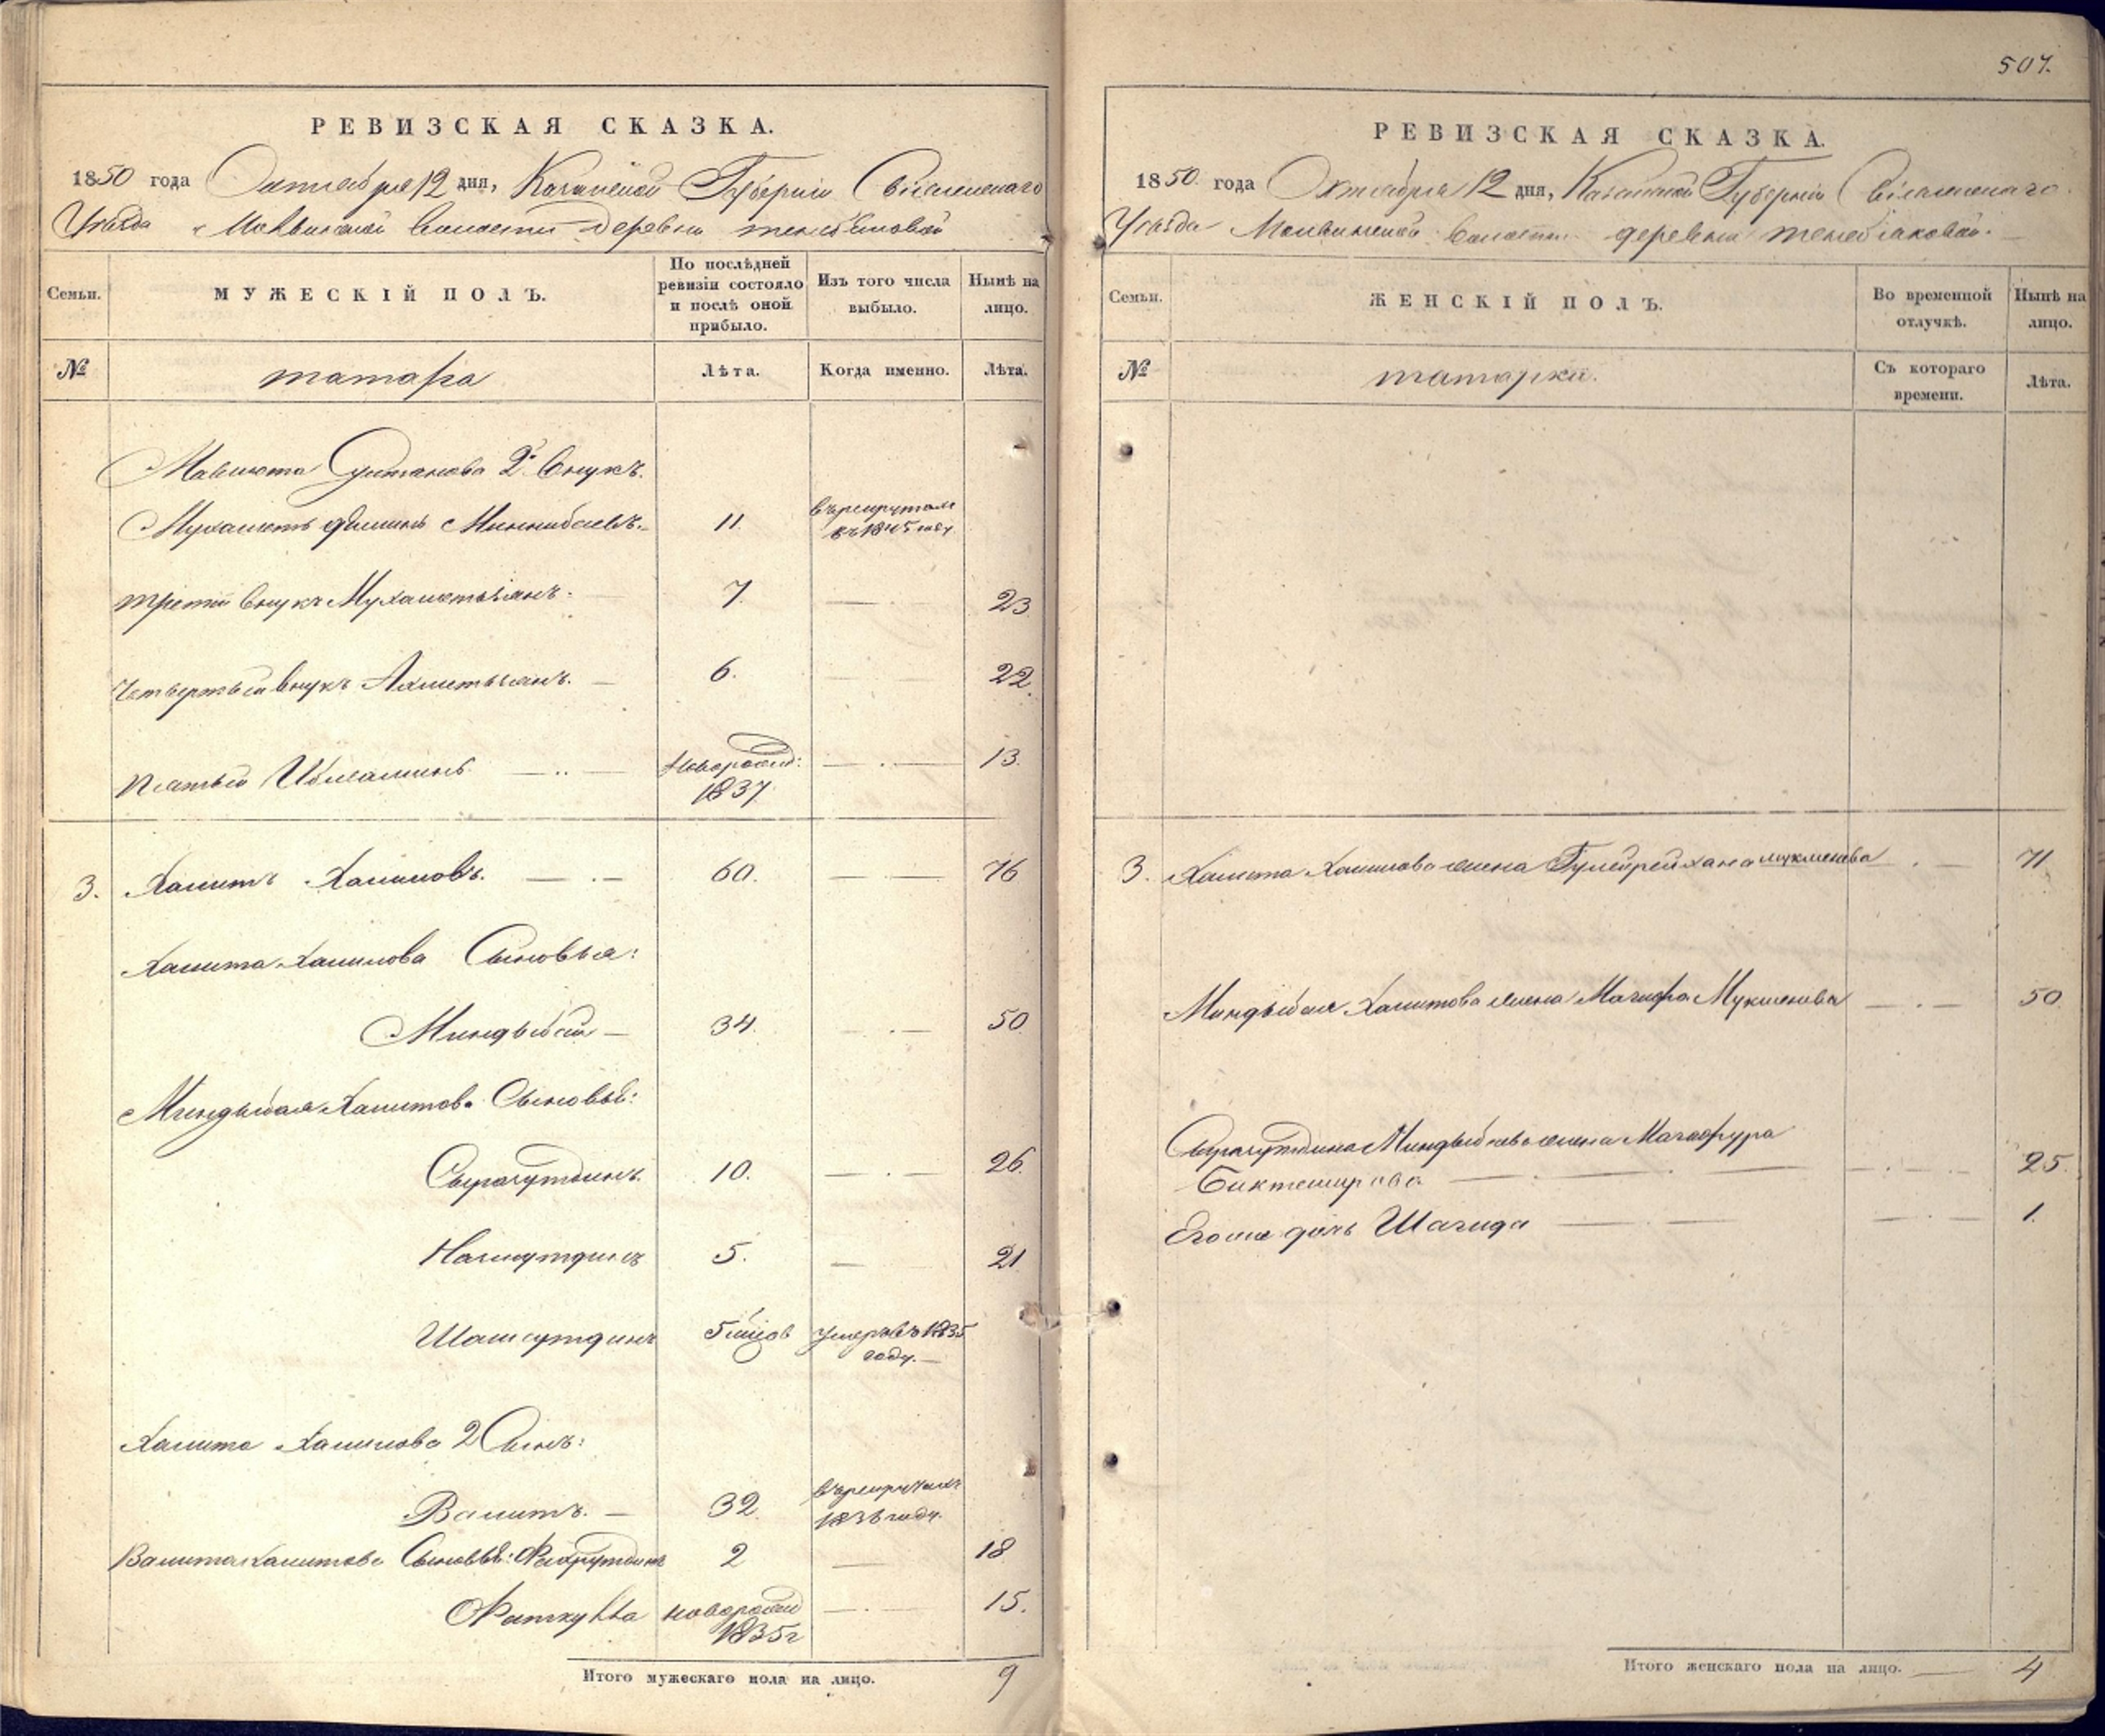 РЕВИЗСКАЯ СКАЗКА.
1850 года Октября 12 дня, Казанской Губернии Свіяжскаго
Уезда Молвинской Волости деревни
Семьи.
МУЖЕСКІЙ ПОЛЪ.
По послѣдней ревизіи состояло и послѣ оной прибыло.
Изъ того числа выбыло.
Нынѣ на лицо.
№
татара
Лѣта.
Когда именно.
Лѣта.
Мавлюта Султанова 2й внукъ.
Мухаметъ Миннибаевъ. 11. въ рекрутахъ
въ 1845 году
третий внукъ Мухаметьянъ. 7. 23
Четвертый внукъ Ахметьянъ. 6. 22.
Пятый новорожд: 13.
1837
3. Хамитъ Халиловъ. 60. 76
Хамита Халилова Сыновья:
Миндыбай 34. 50
Миндыбая Хамитова Сыновья:
Сырачутдинъ. 10. 26.
5. 21
5 мѣсяцов умеръ въ 1835
году.
Хамита Халилова 2 Сынъ:
Валитъ. 32. въ рекрутахъ
году.
Валита Хамитова Сыновья: Фахрутдинъ 2 18
Фаткулла новорожд 15.
1835г
Итого мужескаго пола на лицо. 9
507.
РЕВИЗСКАЯ СКАЗКА.
1850. года Октября 12 дня, Казанской Губерніи Свіяжскаго
Уезда Молвинской Волости деревни
Семьи.
ЖЕНСКІЙ ПОЛЪ.
Во временной отлучкѣ.
Нынѣ на лицо.
№
татарки.
Съ котораго времени.
Лѣта.
3. Хамита Халилова жена 71
Миндыбая Хамитова жена Мукменева 50
Сырачутдина Миндыбаева жена
Биктемирова 25.
Его же дочь Шагида 1.
Итого женскаго пола на лицо. 4